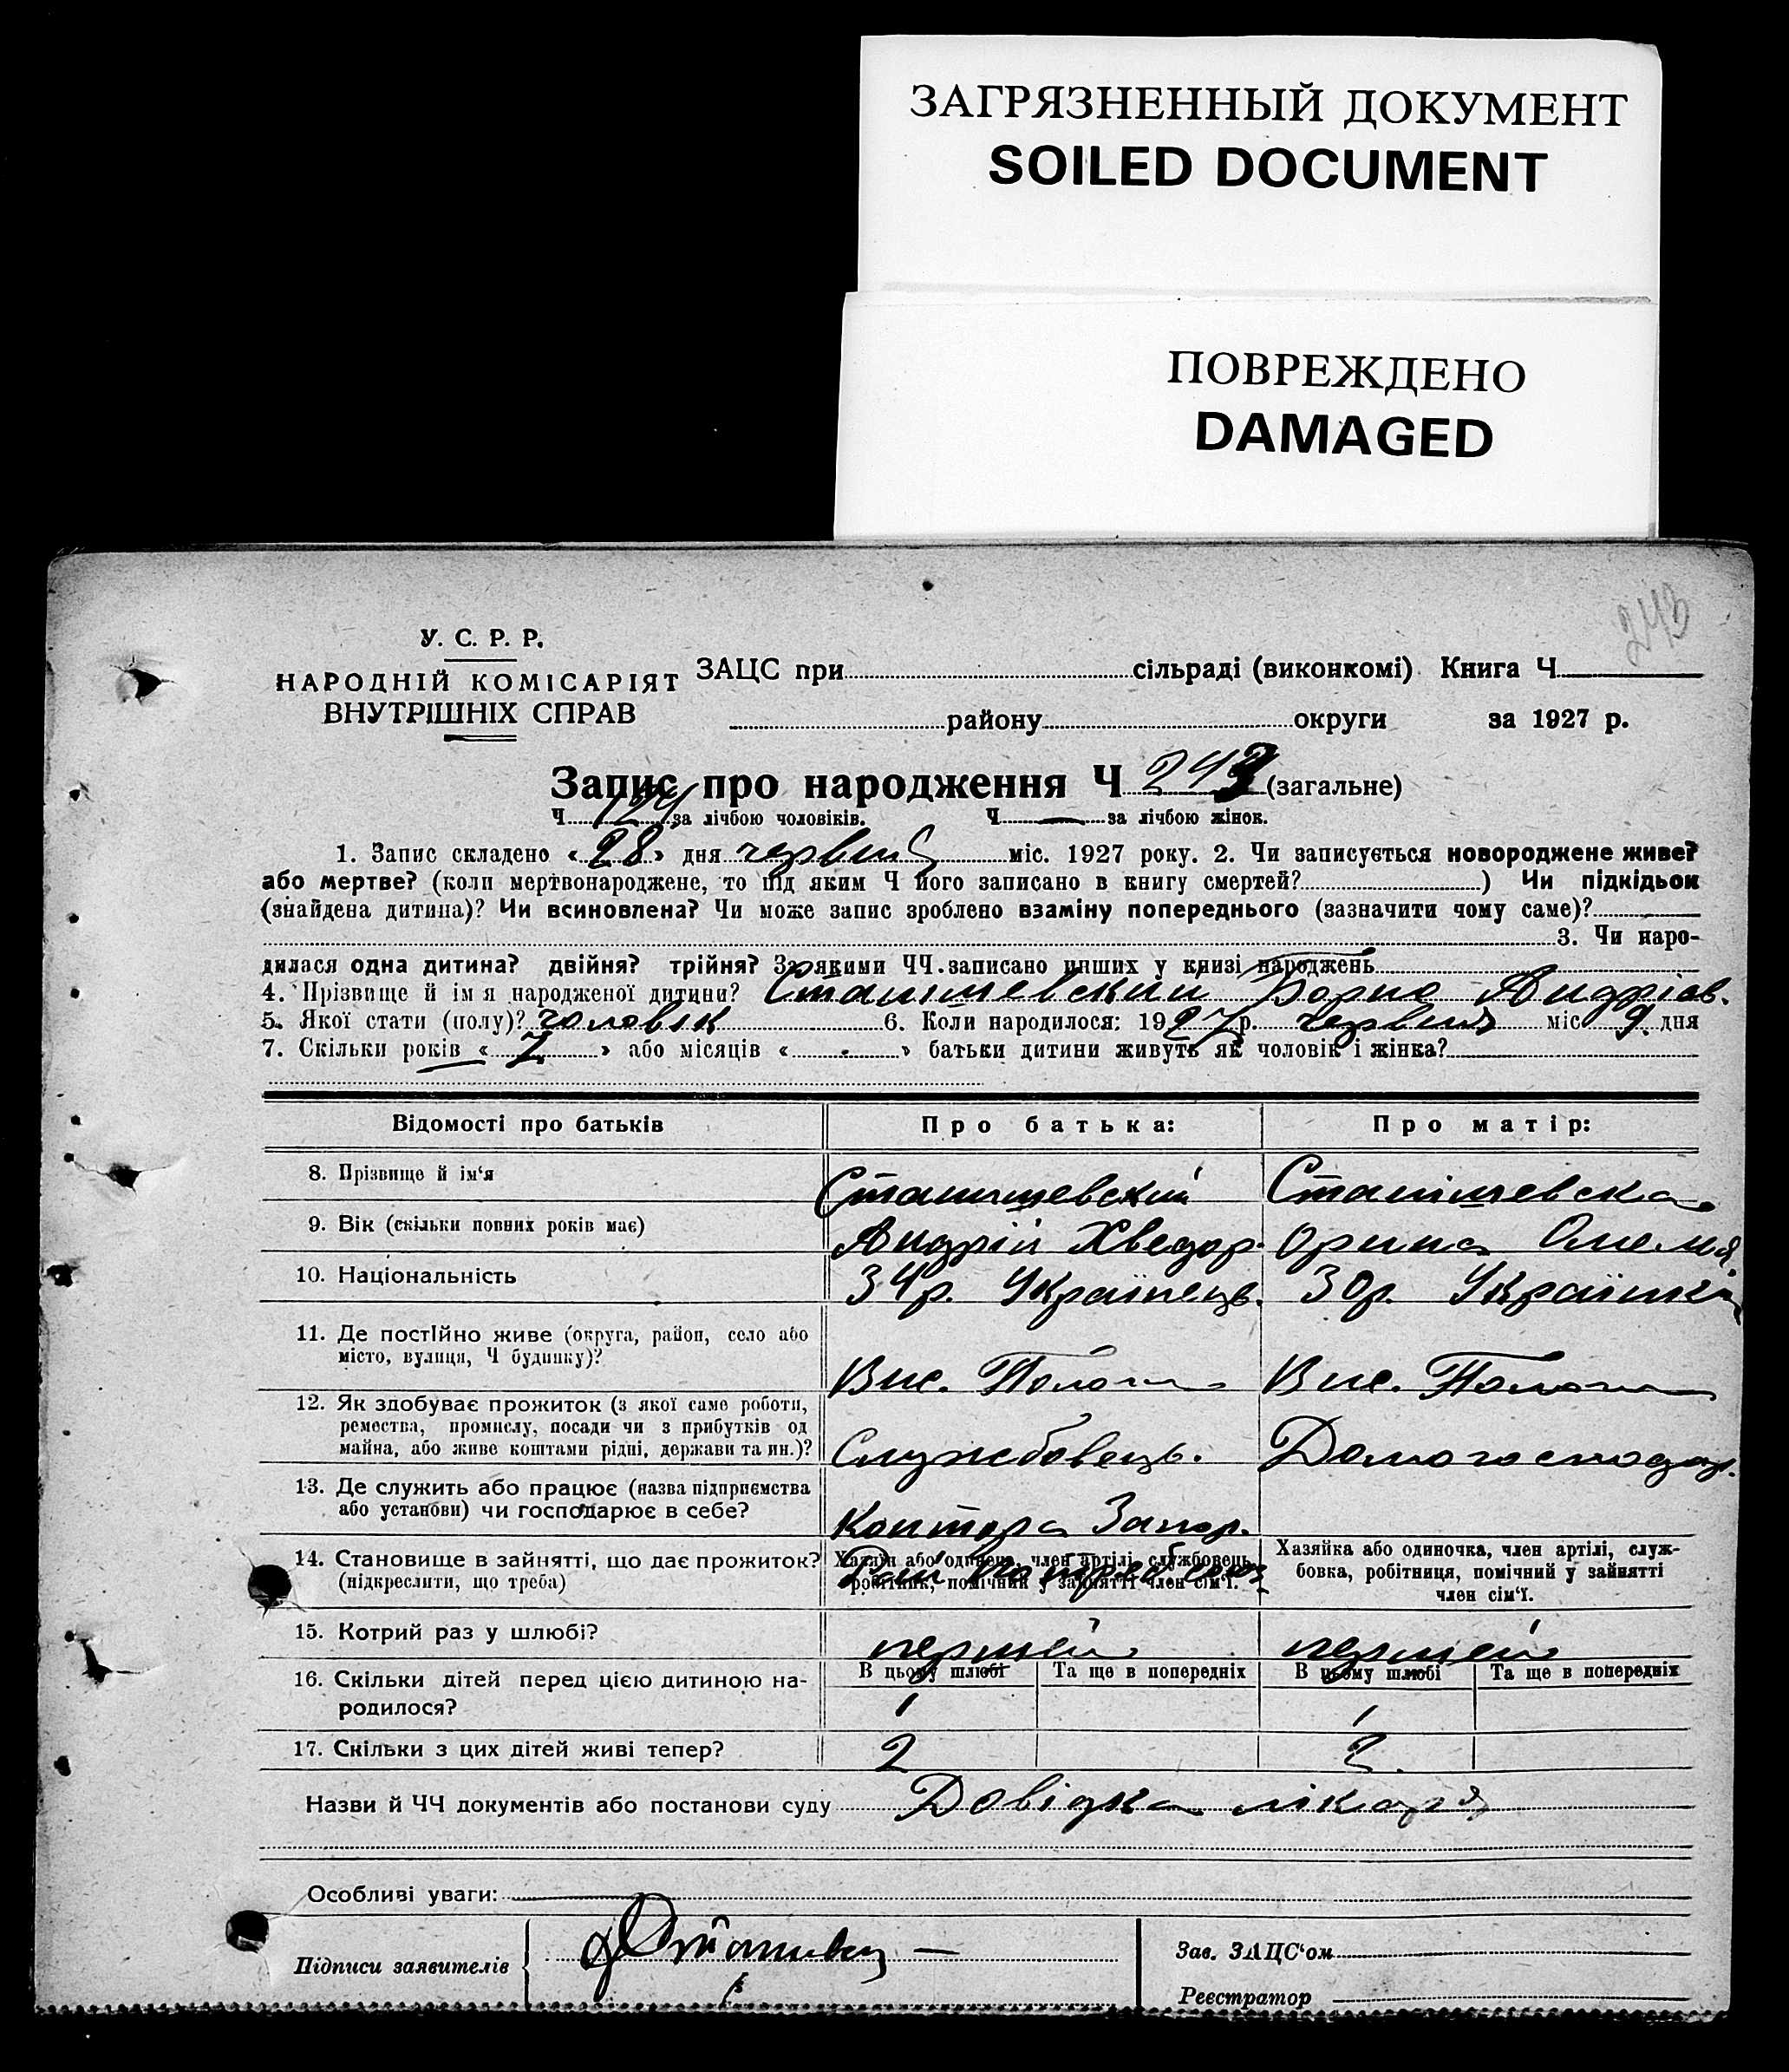 ЗАГРЯЗНЕННЫЙ ДОКУМЕНТ
SOILED DOCUMENT
ПОВРЕЖДЕНО
DAMAGED
243
У. С. Р. Р.
НАРОДНІЙ КОМІСАРІЯТ
ВНУТРІШНІХ СПРАВ
ЗАЦС при сільраді (виконкомі) Книга Ч
району округи за 1927 р.
Запис про народження Ч 243 (загальне)
Ч 124 за лічбою чоловіків. Ч — за лічбою жінок.
1. Запис складено «28» дня червня міс. 1927 року. 2. Чи записується новороджене живе?
або мертве? (коли мертвонароджене, то під яким Ч його записано в книгу смертей? ) Чи підкідьок
(знайдена дитина)? Чи всиновлена? Чи може запис зроблено взаміну попереднього (зазначити чому саме)?
3. Чи наро-
дилася одна дитина? двійня? трійня? За якими ЧЧ записано инших у книзі народжень
4. Прізвище й ім'я народженої дитини? Станишевский Борис Андріов.
5. Якої стати (полу)? чоловік 6. Коли народилося: 1927 р. червня міс 9 дня
7. Скільки років «7» або місяців « - » батьки дитини живуть як чоловік і жінка?
Відомості про батьків Про батька: Про матір:
8. Прізвище й ім'я Станишевский Станішевска
9. Вік (скільки повних років має) Андрій Хведор. Орина Омеля
10. Національність 34р. Українець. 30р. Українка
11. Де постійно живе (округа, район, село або
місто, вулиця, Ч будинку)? Вис. Пологи Вис. Пологи
12. Як здобуває прожиток (з якої саме роботи,
ремества, промислу, посади чи з прибутків од
майна, або живе коштами рідні, держави та ин.)? Службовець. Домогосподар.
13. Де служить або працює (назва підприємства
або установи) чи господарює в себе? Контора Запор.
14. Становище в зайнятті, що дає прожиток? Хазяїн або одинець, член артілі, службовець, Хазяйка або одиночка, член артілі, служ-
(підкреслити, що треба) робітник, помічник у зайнятті член сім'ї. бовка, робітниця, помічний у зайнятті
член сім'ї.
Рай
15. Котрий раз у шлюбі? перший перший
16. Скільки дітей перед цією дитиною на- В цьому шлюбі Та ще в попередніх В цьому шлюбі Та ще в попередніх
родилося? 1 1
17. Скільки з цих дітей живі тепер? 2 2
Назви й ЧЧ документів або постанови суду Довідка лікаря
Особливі уваги:
Підписи заявителів
Зав. ЗАЦС'ом
Реєстратор